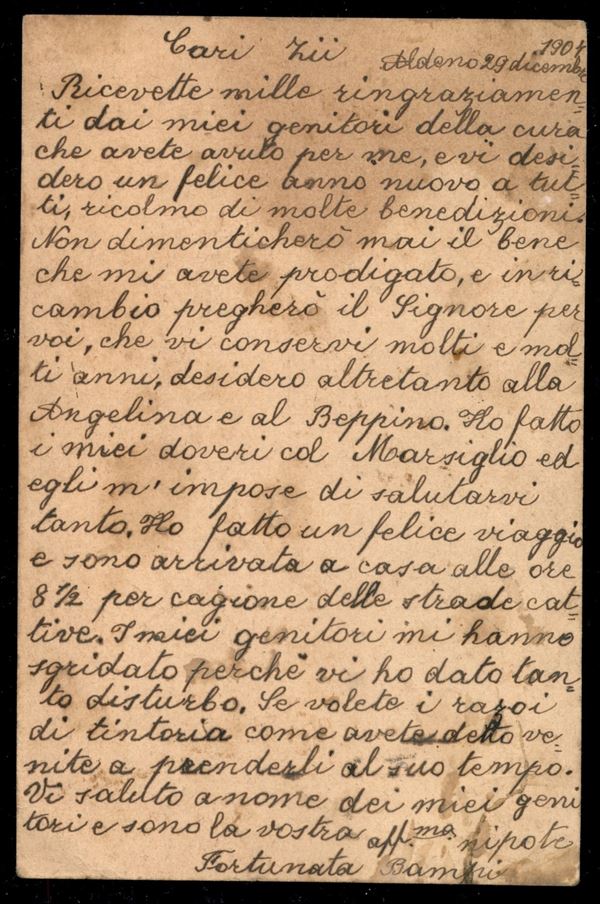 Cari Zii
Aldeno 29 dicembre 1904
Ricevette mille ringraziamen=
ti dai miei genitori della cura
che avete avuto per me, e vi desi=
dero un felice anno nuovo a tut=
ti, ricolmo di molte benedizioni.
Non dimenticherò mai il bene
che mi avete prodigato, e in ri=
cambio pregherò il Signore per
voi, che vi conservi molti e mol=
ti anni, desidero altretanto alla
Angelina e al Beppino. Ho fatto
i miei doveri col Marsiglio ed
egli m' impose di salutarvi
tanto. Ho fatto un felice viaggio
e sono arrivata a casa alle ore
8 1/2 per cagione delle strade cat=
tive. I miei genitori mi hanno
sgridato perchè vi ho dato tan=
to disturbo. Se volete i
di tintoria come avete detto ve=
nite a prenderli al suo tempo.
Vi saluto a nome dei miei geni
tori e sono la vostra aff.ma nipote
Fortunata